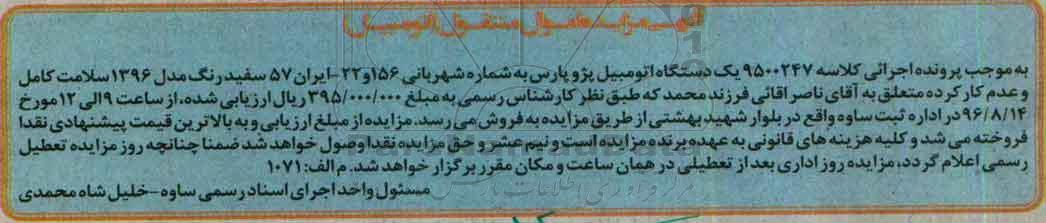 آگهی مزایده اموال منقول (اتومبیل)
به موجب پرونده اجرائی کلاسه ۹۵۰۰۲۴۷ یک دستگاه اتومبیل پژو پارس به شماره شهربانی ۱۵۶و۲۲-ایران ۵۷ سفید رنگ مدل ۱۳۹۶ سلامت کامل
و عدم کارکرده متعلق به آقای ناصر اقائی فرزند محمد که طبق نظر کارشناس رسمی به مبلغ ۳۹۵/۰۰۰/۰۰۰ ریال ارزیابی شده، از ساعت ۹الی ۱۲ مورخ
۹۶/۸/۱۴ در اداره ثبت ساوه واقع در بلوار شهید بهشتی از طریق مزایده به فروش می رسد. مزایده از مبلغ ارزیابی و به بالاترین قیمت پیشنهادی نقدا
فروخته می شد و کلیه هزینه های قانونی به عهده برنده مزایده است و نیم عشر و حق مزایده نقدا وصول خواهد شد ضمنا چنانچه روز مزایده تعطیل
رسمی اعلام گردد، مزایده روز اداری بعد از تعطیلی در همان ساعت و مکان مقرر برگزار خواهد شد. م الف: ۱۰۷۱
مسئول واحد اجرای اسناد رسمی ساوه-خلیل شاه محمدی